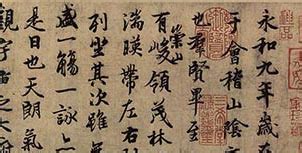 永和九年歲在
于會稽山陰
也群賢畢至
有崇山峻領茂林
湍暎帶左右
列坐其次雖
盛一觴一詠
是日也天朗氣
觀宇宙之大